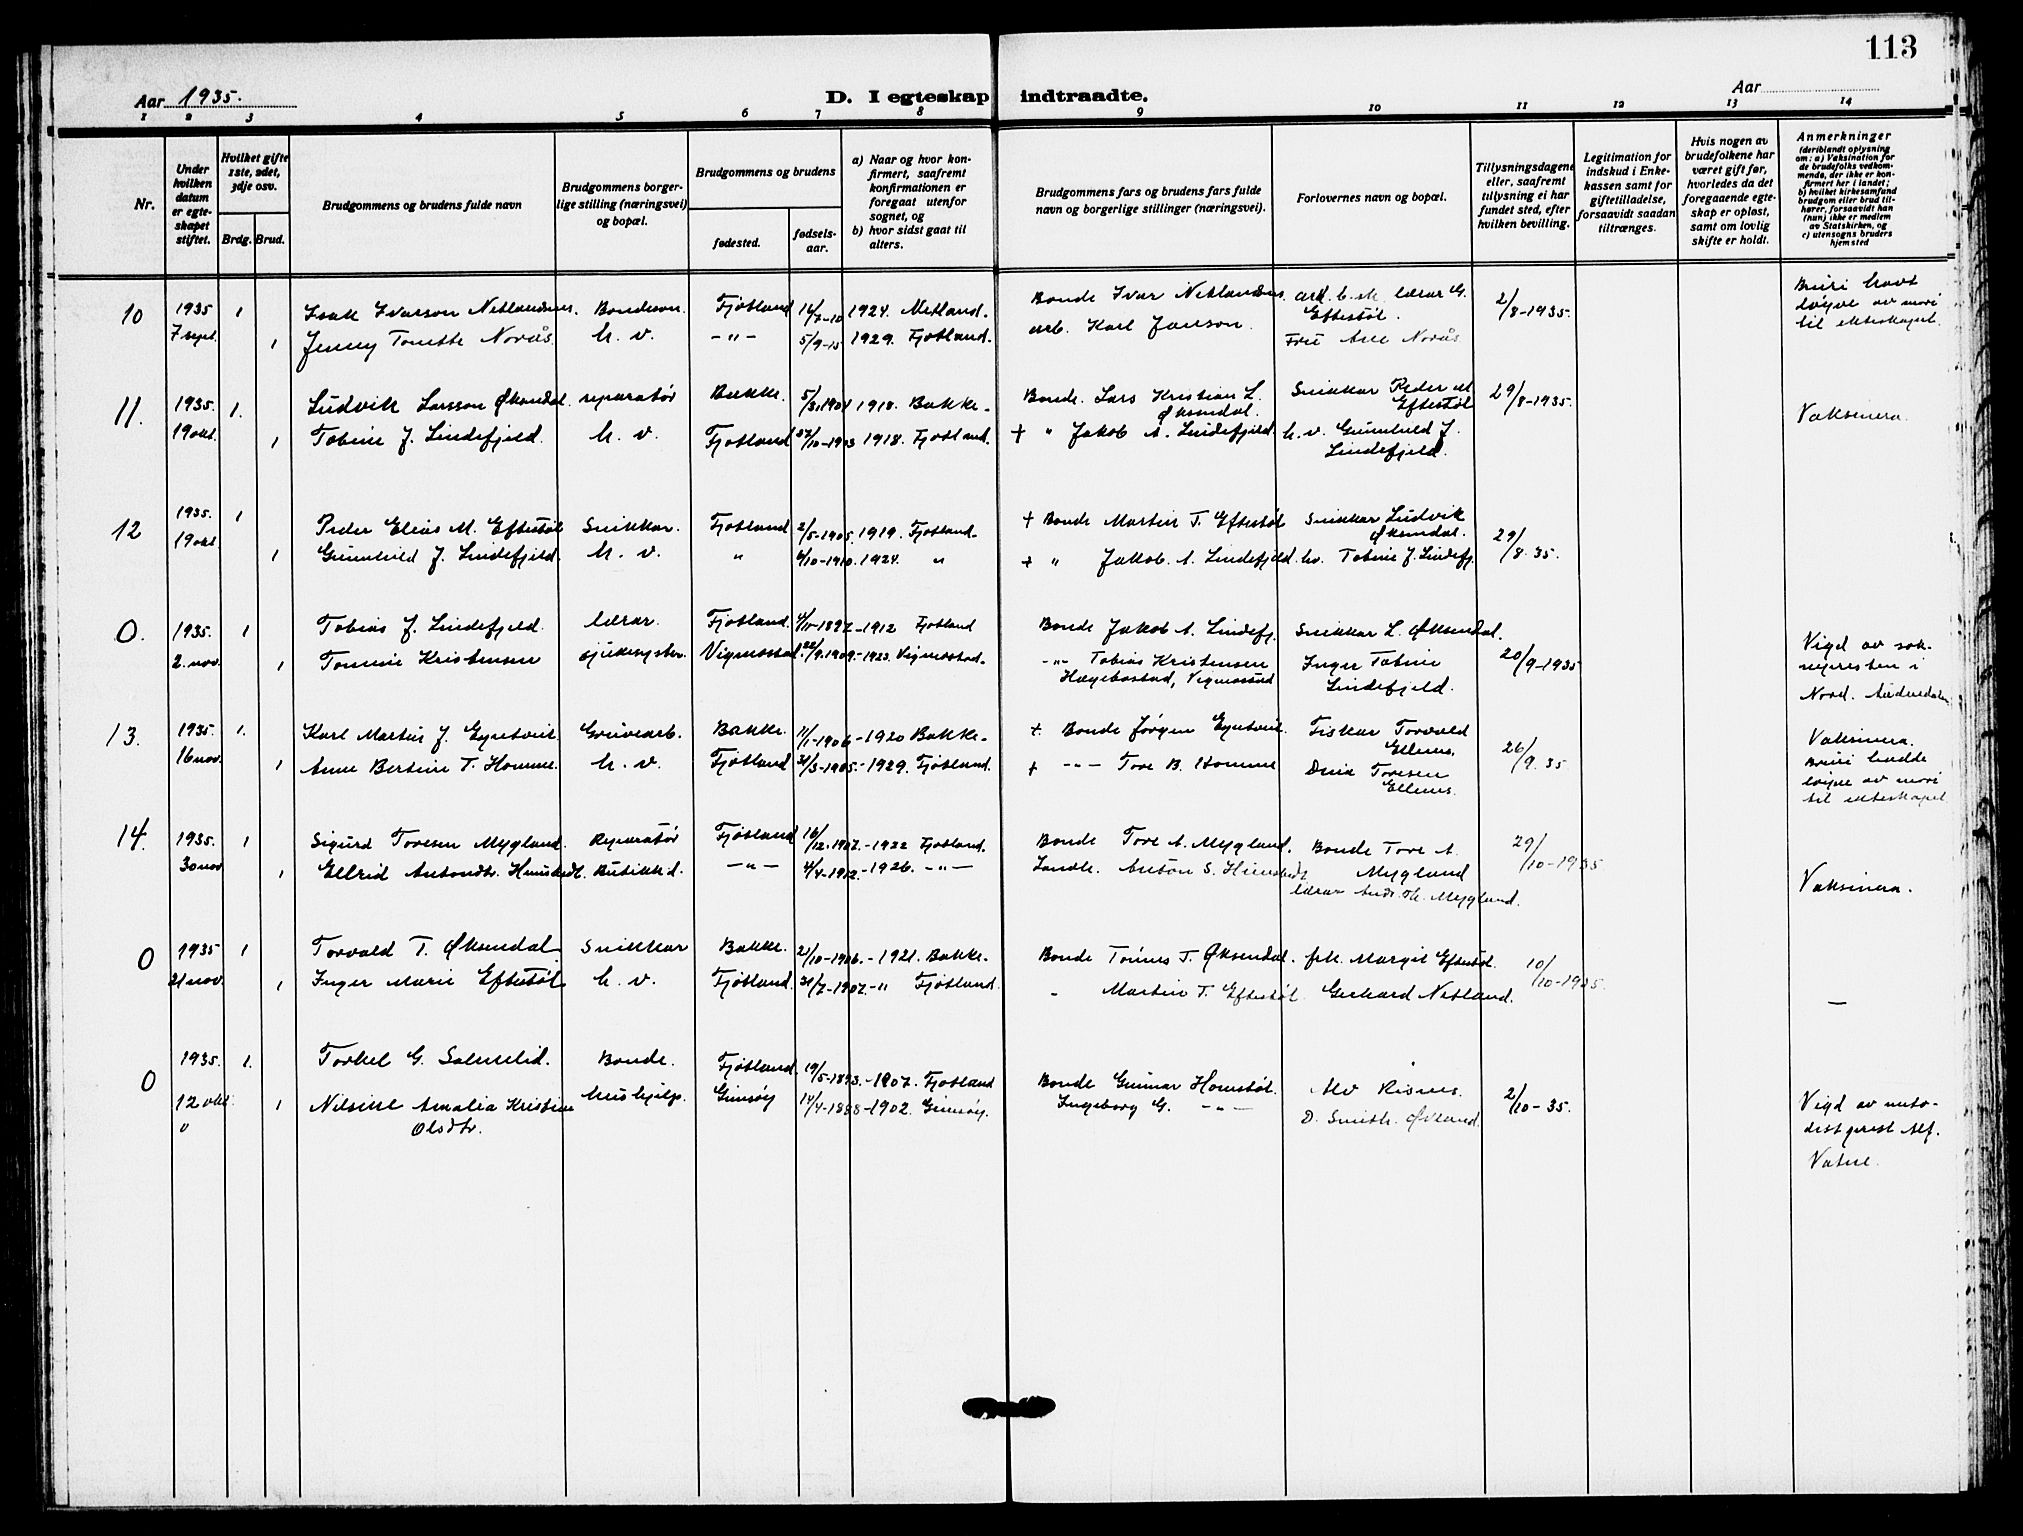 113
Aar 1935.
D. I egteskap indtraadte.
Aar
1 2 3 4 5 6 7 8 9 10 11 12 13 14
Nr.
Under
hvilken
datum
er egte-
skapet
stiftet.
Hvilket gifte
1ste, 2det,
3dje osv.
Brdg. Brud.
Brudgommens og brudens fulde navn
Brudgommens borger-
lige stilling (næringsvei)
og bopæl.
Brudgommens og brudens
fødested.
fødsels-
aar.
a) Naar og hvor kon-
firmert, saafremt
konfirmationen er
foregaat utenfor
sognet, og
b) hvor sidst gaat til
alters.
Brudgommens fars og brudens fars fulde
navn og borgerlige stillinger (næringsvei).
Forlovernes navn og bopæl.
Tillysningsdagene
eller, saafremt
tillysning ei har
fundet sted, efter
hvilken bevilling.
Legitimation for
indskud i Enke-
kassen samt for
giftetilladelse,
forsaavidt saadan
tiltrænges.
Hvis nogen av
brudefolkene har
været gift før,
hvorledes da det
foregaaende egte-
skap er opløst,
samt om lovlig
skifte er holdt.
Anmerkninger
(deriblandt oplysning
om: a) Vaksination for
de brudefolks vedkom-
mende, der ikke er kon-
firmert her i landet;
b) hvilket kirkesamfund
brudgom eller brud til-
hører, forsaavidt han
(hun) ikke er medlem
av Statskirken, og
c) utensogns bruders
hjemsted
10 1935 1 Isak Ivarson Netlandsnes. Bondeson. Fjotland 14/7-10 1924. Netland. Bonde Ivar Netlandsnes. lærar G. Eftestøl. 2/8-1935. Bruri havt
løyve av mori
til ekteskapet.
7 sept. 1 Jenny Tomette Norås. h. v. -"- 5/9-15 1929. Fjotland. arb. Karl Janson. Norås
11. 1935. 1. Ludvik Larsson Øksendal. reparatør Bakke. 5/3.1904 1918. Bakke. Bonde. Lars Kristian L. Øksendal. Snikkar Peder M Eftestøl 29/8-1935. Vaksinera.
19 okt. 1 Tobine J. Lindefjeld. h. v. Fjotland 27/10-1903 1918. Fjotland. + " Jakob A. Lindefjeld. h. v. Gunnhild J. Lindefjeld.
12 1935. 1 Peder Elias M. Eftestøl Snikkar. Fjotland 2/5-1905. 1919. Fjotland. + Bonde Martin T. Eftestøl Snikkar Ludvik Øksendal. 29/8.35.
19 okt 1 Gunnhild J. Lindefjeld. h. v. " 4/10-1910. 1924. " + " Jakob. A. Lindefjeld. hv. Tobine J. Lindefj.
0. 1935. 1 Tobias J. Lindefjeld. lærar. Fjotland. 4/10-1897.-1912 Fjotland Bonde Jakob A. Lindefj. Snikkar L. Øksendal. 20/9-1935 Vigd av sok-
nepresten i
Nord. Audnedalen
2. nov. 1 Tomine Kristensen sjukesyster. Vigmostad. 22/9.1909.-1923. Vigmostad. -"- Tobias Kristensen
Hægebostad, Vigmostad Inger Tobine Lindefjeld.
13. 1935. 1. Karl Martin J. Eyntveit Gruvearb. Bakke. 11/1-1906 -1920 Bakke. + Bonde Jørgen Eyntveit. Fiskar Torvald Ellenes. 26/9.35 Vaksinera.
Bruri hadde
løyve av mori
til ekteskapet
16 nov. 1 Anne Bertine T. Homme. h. v. Fjotland 31/3-1905.-1929. Fjotland. + -"- Tore B. Homme Toresen Ellenes.
14. 1935. 1 Sigurd Toresen Mygland. Reparatør Fjotland 16/12.1907.-1922 Fjotland. Bonde Tore A. Mygland. Bonde Tore A. Mygland 29/10-1935 Vaksinera.
30 nov 1 Ellrid Antondtr. Hunsbedt. Butikkd. -"- 4/4-1912.-1926. -"- Landh. Anton S. Hunsbedt lærar Andr. Th. Mygland.
0 1935 1 Torvald T. Øksendal Snikkar Bakke. 21/10-1906.-1921. Bakke. Bonde Tønnes T. Øksendal. frk. Margit Eftestøl. 10/10-1935. —
21 nov. 1 Inger Marie Eftestøl h. v. Fjotland. 31/7-1907.-" Fjotland. " Martin T. Eftestøl Gerhard Netland.
0 1935. 1. Torkel G. Solmelid. Bonde. Fjotland. 19/5-1893.-1907. Fjotland Bonde Gunnar Homstøl. Alv Risnes. 2/10-35. Vigd av meto-
distprest Alf.
Vatne.
12 okt. 1 Nilsine Amalia Kristine Olsdtr. hushjelp. Gimsøy 14/4-1888-1902. Gimsøy. Ingeborg G. -"- D. Smith. Øysland.
"